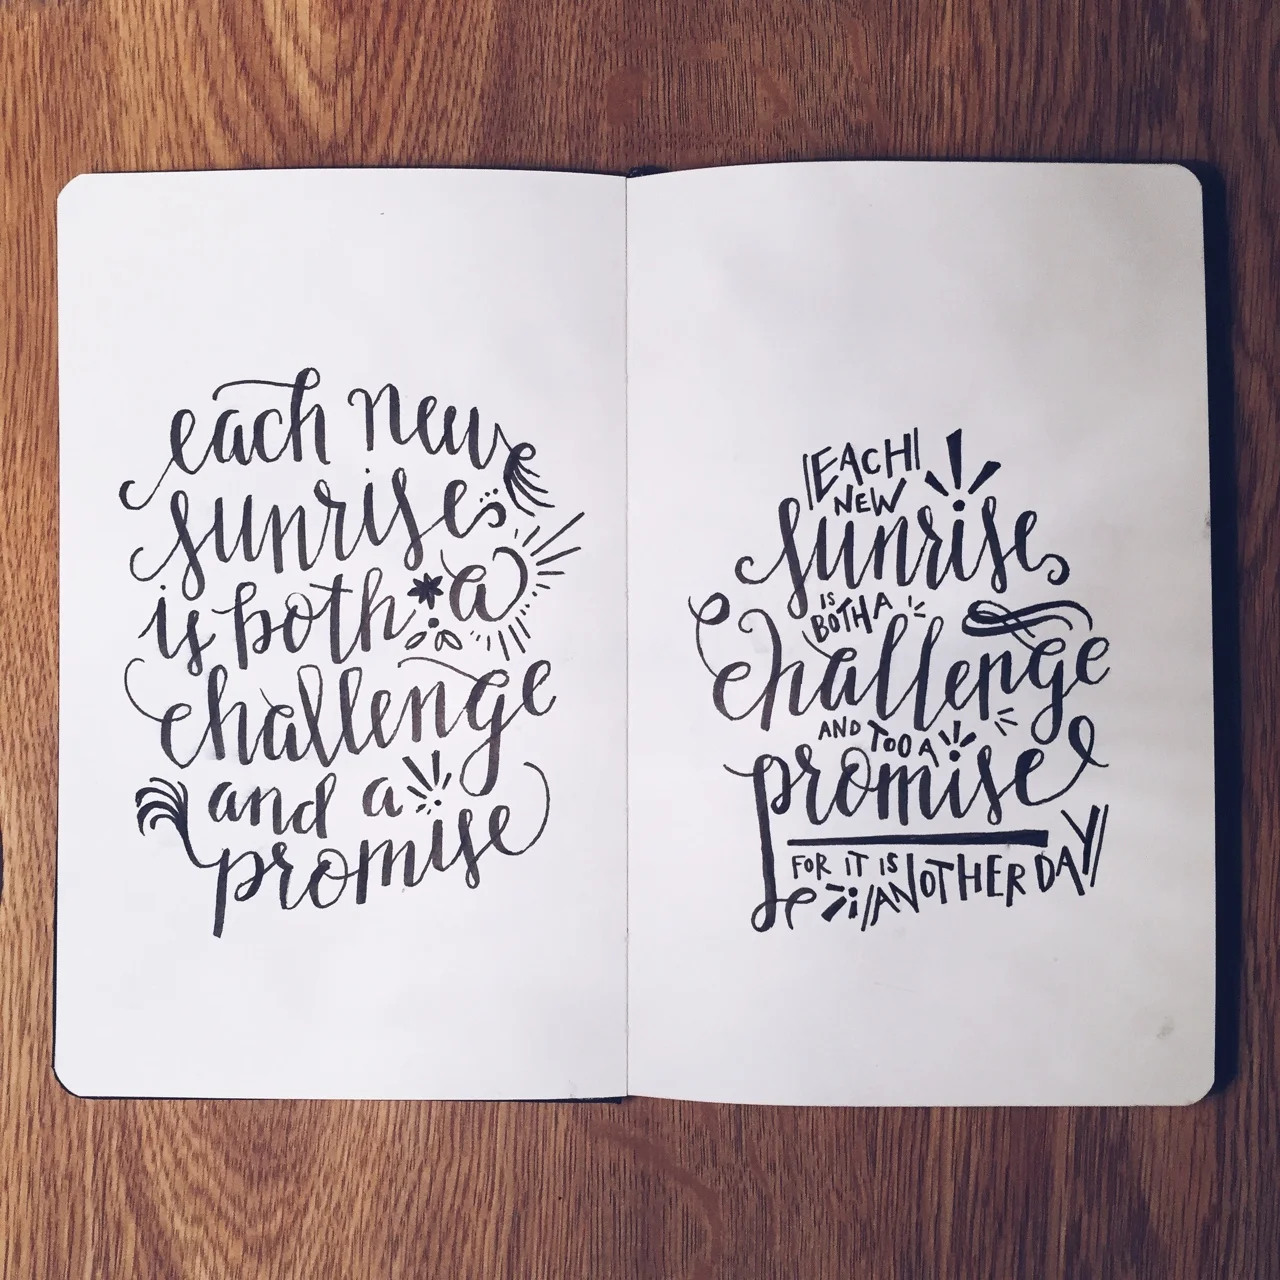 each new
sunrise
is both a
challenge
and a
promise
EACH
NEW
sunrise
IS
BOTH A
challenge
AND TOO A
promise
FOR IT IS
ANOTHER DAY